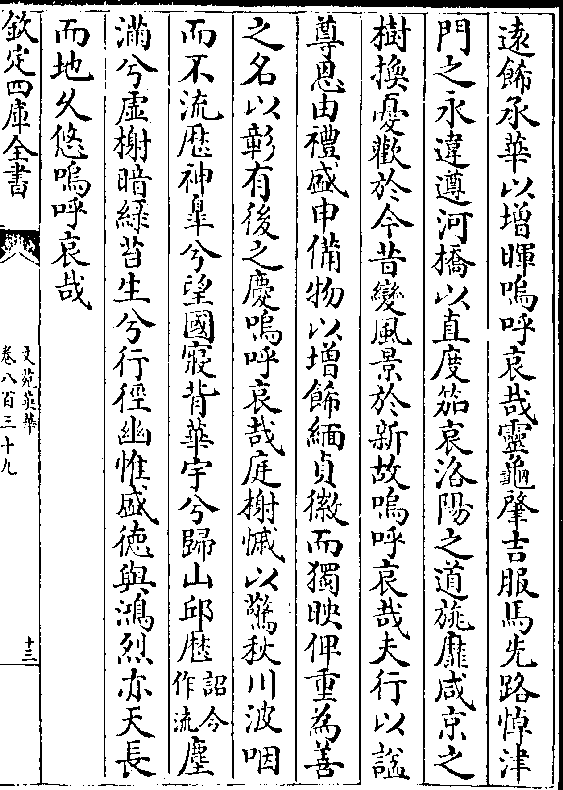 遠飾承華以增暉嗚呼哀哉靈龜肇吉服馬先路悼津
門之永違遵河橋以直度笳哀洛陽之道旐靡咸京之
樹換憂歡於今昔變風景於新故嗚呼哀哉夫行以諡
尊恩由禮盛申備物以增飾緬貞徽而獨映俾重為善
之名以彰有後之慶嗚呼哀哉庭樹慽以驚秋川波咽
而不流歴神臯兮望國寢背華宇兮歸山邱歴詔令作流塵
滿兮虛榭暗緑苔生兮行徑幽惟盛徳與鴻烈亦天長
而地乆悠嗚呼哀哉
欽定四庫全書
文苑英華
卷八百三十九
十三